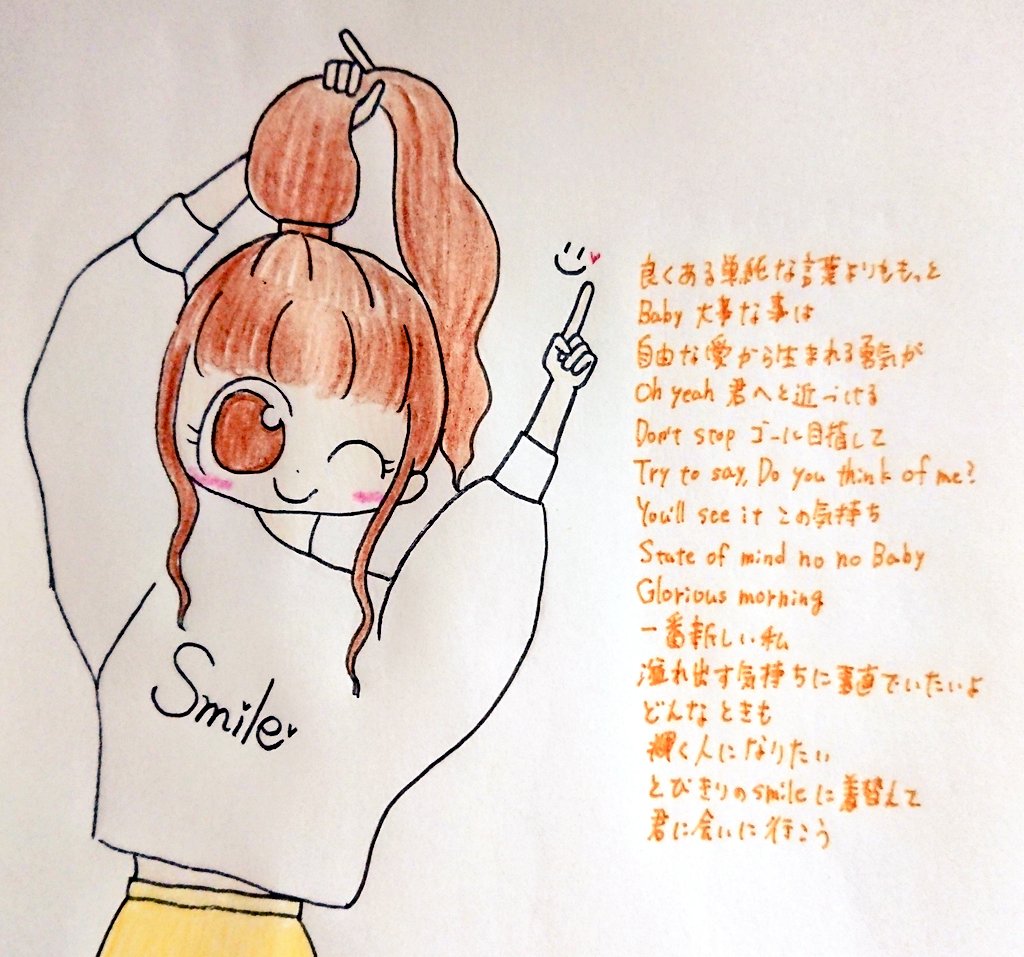 Smile
良くある単純な言葉よりももっと
Baby 大事な事は
自由な愛から生まれる勇気が
Oh yeah 君へと近づける
Don't stop ゴール目指して
Try to say, Do you think of me?
You'll see it この気持ち
State of mind no no Baby
Glorious morning
一番新しい私
溢れ出す気持ちに素直でいたいよ
どんなときも
輝く人になりたい
とびきりのsmileに着替えて
君に会いに行こう